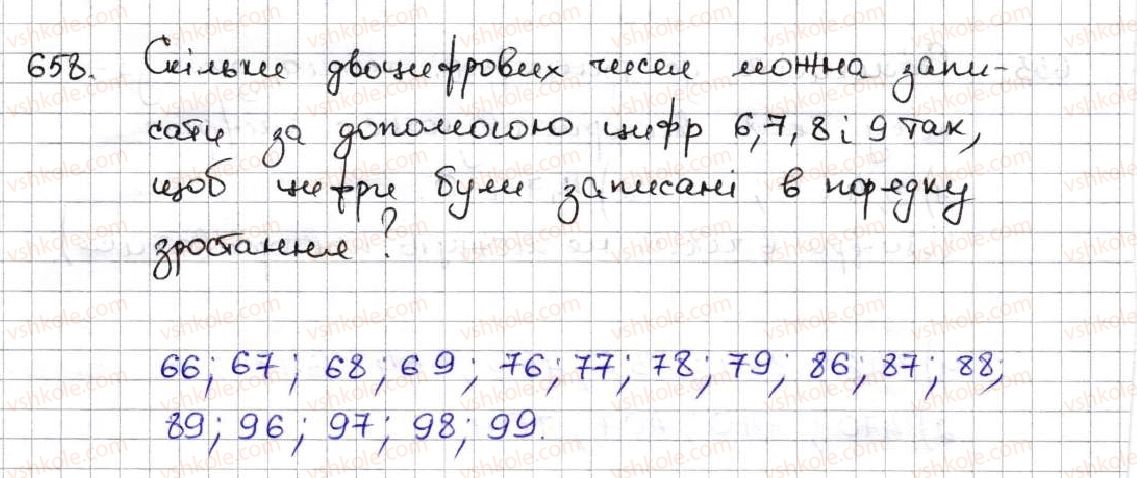 658. Скільки двоцифрових чисел можна запи-
сати за допомогою цифр 6,7,8 і 9 так,
щоб цифри були записані в порядку
зростання?
66; 67; 68; 69; 76; 77; 78; 79; 86; 87; 88;
89; 96; 97; 98; 99.